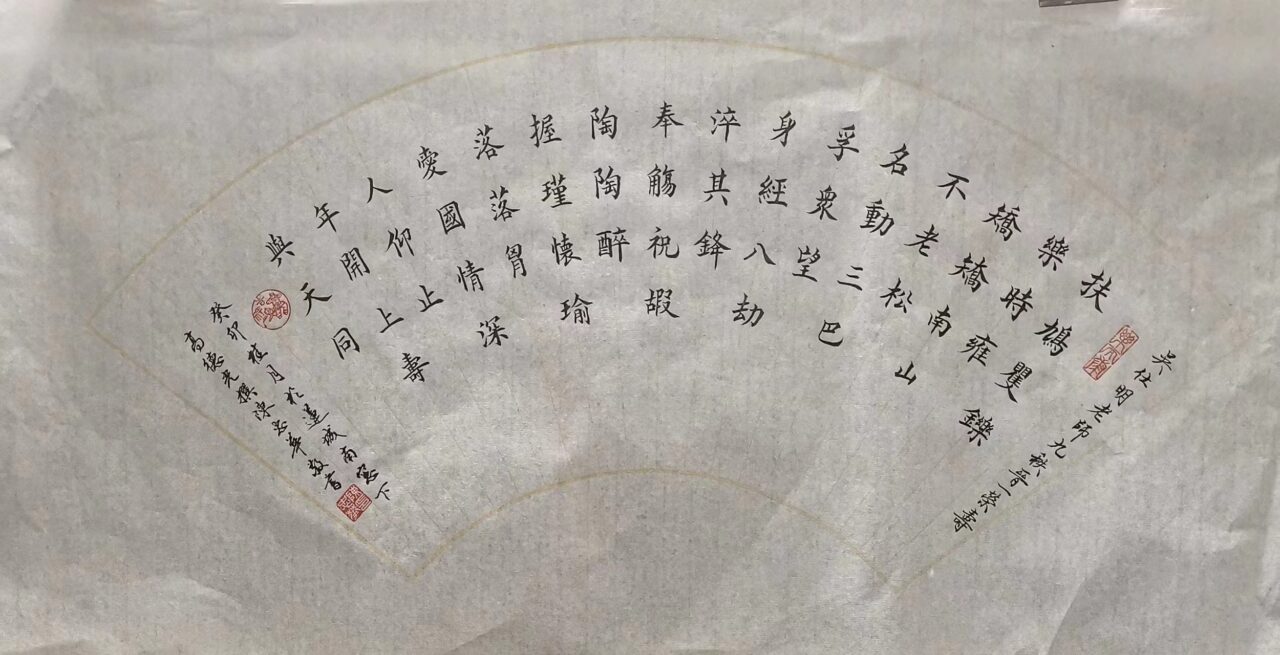 吳仕明老師九秩晉一榮壽
扶鳩矍鑠
樂時雍
矯矯南山
不老松
名動三巴
孚眾望
身經八劫
淬其鋒
奉觴祝嘏
陶陶醉
握瑾懷瑜
落落胷
愛國情深
人仰止
年開上壽
與天同
癸卯桂月於蓮城南窗下
高德光撰陳忠華敬書